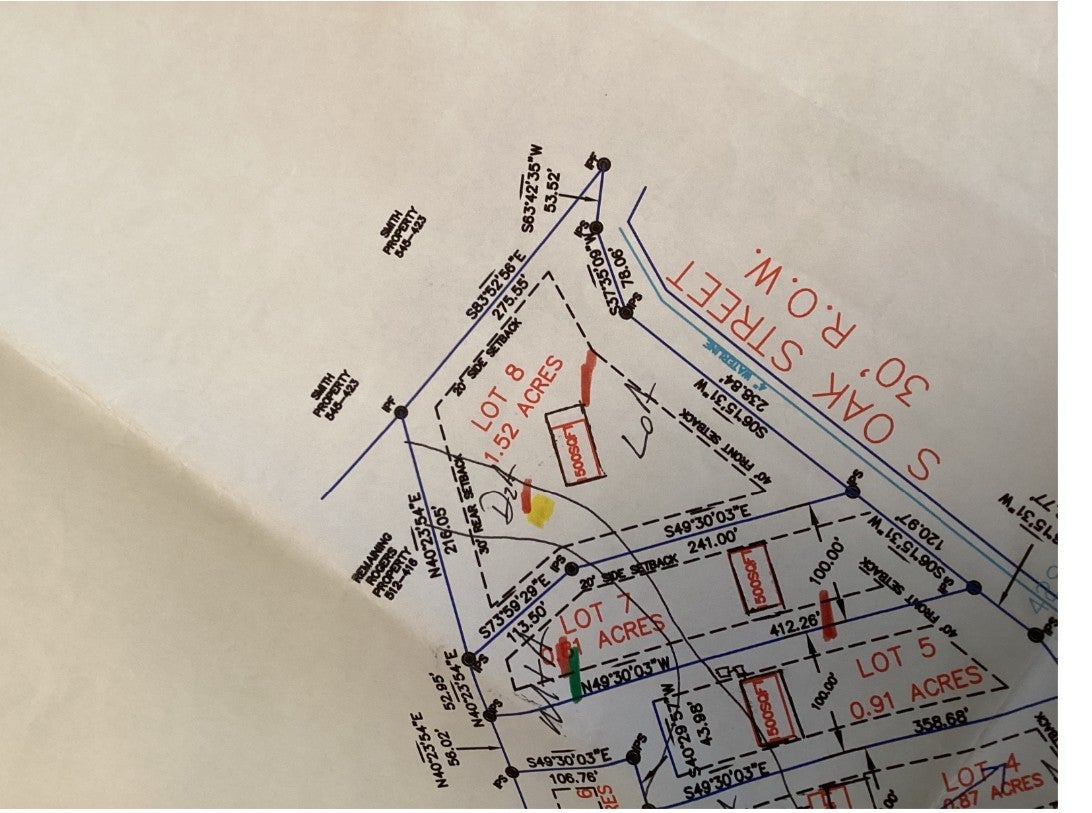 SMITH
PROPERTY
545-423
S63°42'35"W
53.52'
IPF
IPS
S37°35'09"W
78.06'
IPS
S83°52'56"E
275.55'
20' SIDE SETBACK
SMITH
PROPERTY
545-423
IPF
LOT 8
1.52 ACRES
1500SQFT
LOT
4" WATERLINE
S OAK STREET
30' R.O.W.
S06°15'31"W
238.84'
40' FRONT SETBACK
IPS
N40°23'54"E
216.05'
30' REAR SETBACK
REMAINING
ROGERS
PROPERTY
512-416
S49°30'03"E
241.00'
IPS
20' SIDE SETBACK
S73°59'29"E
113.50'
LOT 7
ACRES
1500SQFT
100.00'
S06°15'31"W
120.97'
40' FRONT SETBACK
IPS
412.26'
N49°30'03"W
IPS
N40°23'54"E
52.95'
IPS
N40°23'54"E
56.02'
IPS
LOT 5
0.91 ACRES
1500SQFT
100.00'
S40°29'57"W
43.98'
358.68'
S49°30'03"E
106.76'
IPS
S49°30'03"E
LOT 4
0.87 ACRES
SETBACK